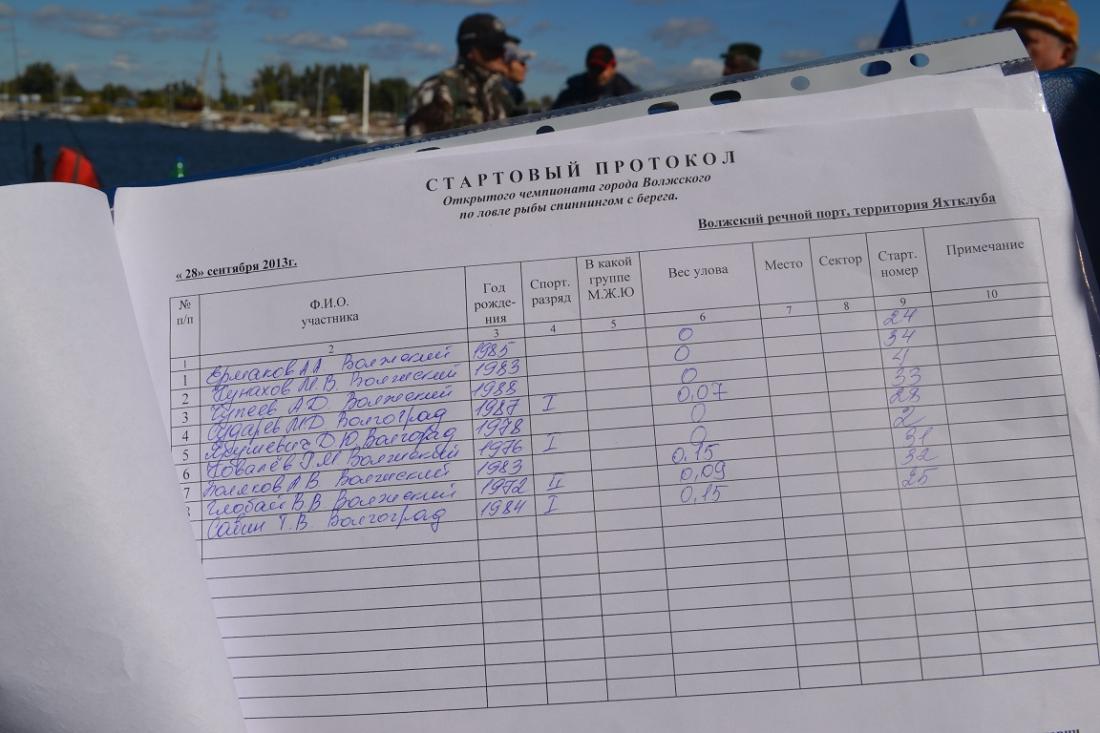 СТАРТОВЫЙ ПРОТОКОЛ
Открытого чемпионата города Волжского
по ловле рыбы спиннингом с берега.
Волжский речной порт, территория Яхтклуба
« 28» сентября 2013г.
№ п/п Ф.И.О. участника Год рожде- ния Спорт. разряд В какой группе М.Ж.Ю Вес улова Место Сектор Старт. номер Примечание
1 2 3 4 5 6 7 8 9 10
1 Ермаков А.А. Волжский 1985 0 24
2 М.В. Волжский 1983 0 34
3 А.Д. Волжский 1988 0 4
4 Сударев М.Д. Волгоград 1987 I 0,07 33
5 Д.Ю. Волгоград 1978 0 28
6 Ковалёв Г.М. Волжский 1976 I 0 2
7 Поляков А.В. Волжский 1983 0,15 31
Глобай В.В. Волжский 1972 II 0,09 32
Савин Т.В. Волгоград 1984 I 0,15 25